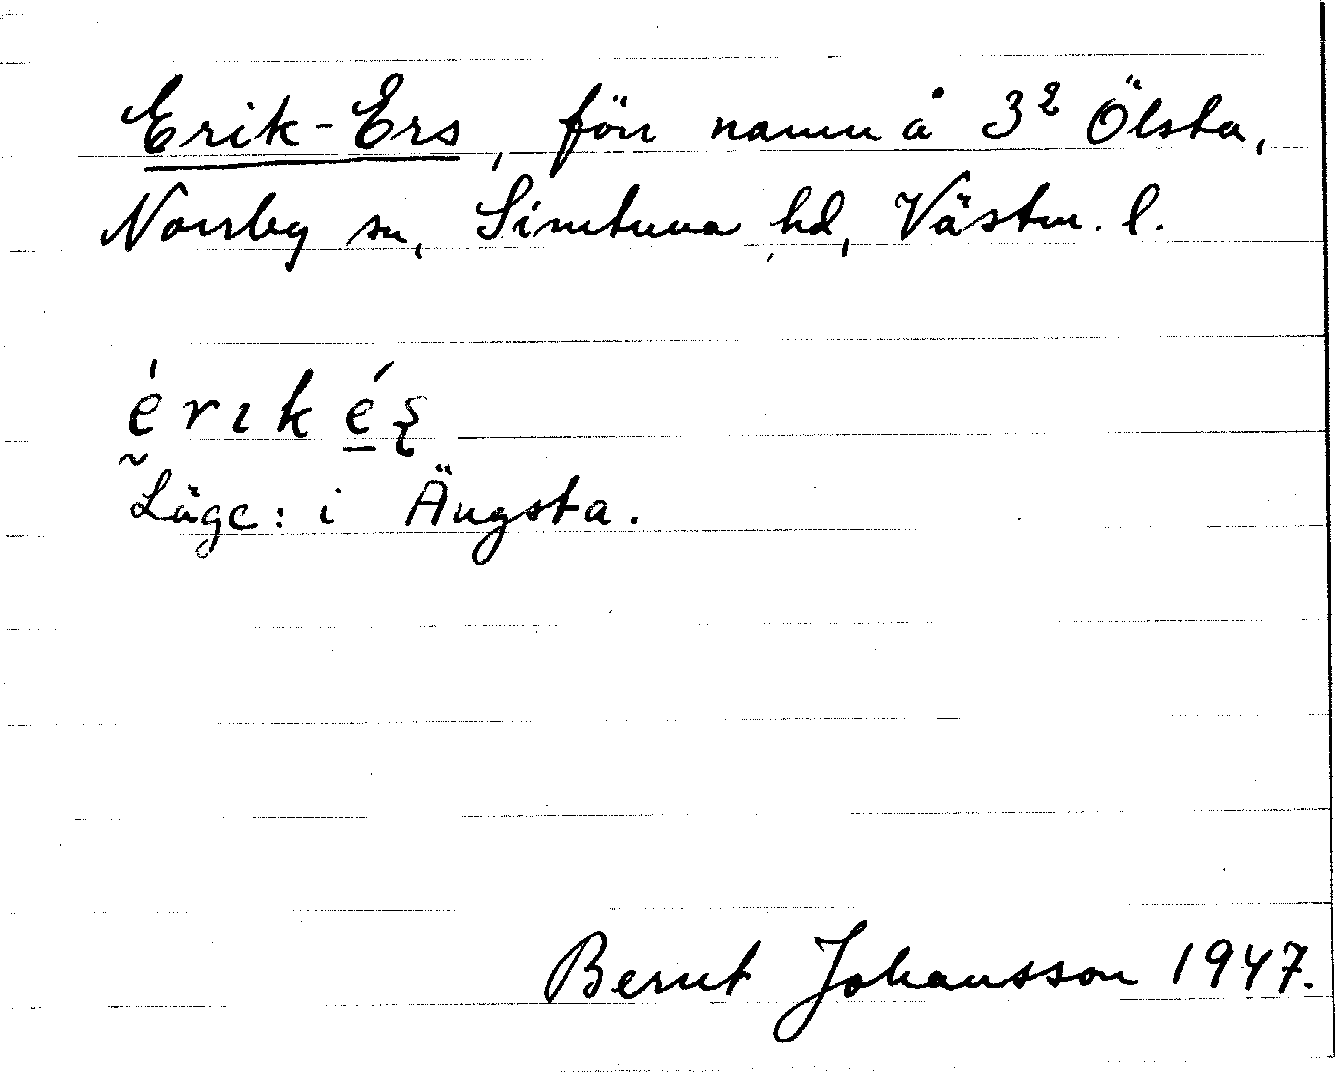 Erik-Ers, förr namn å 3² Ölsta,
Norrby sn, Simtuna hd, Västm. l.
èrık é̠ʂ
Läge: i Ängsta.
Bernt Johansson 1947.